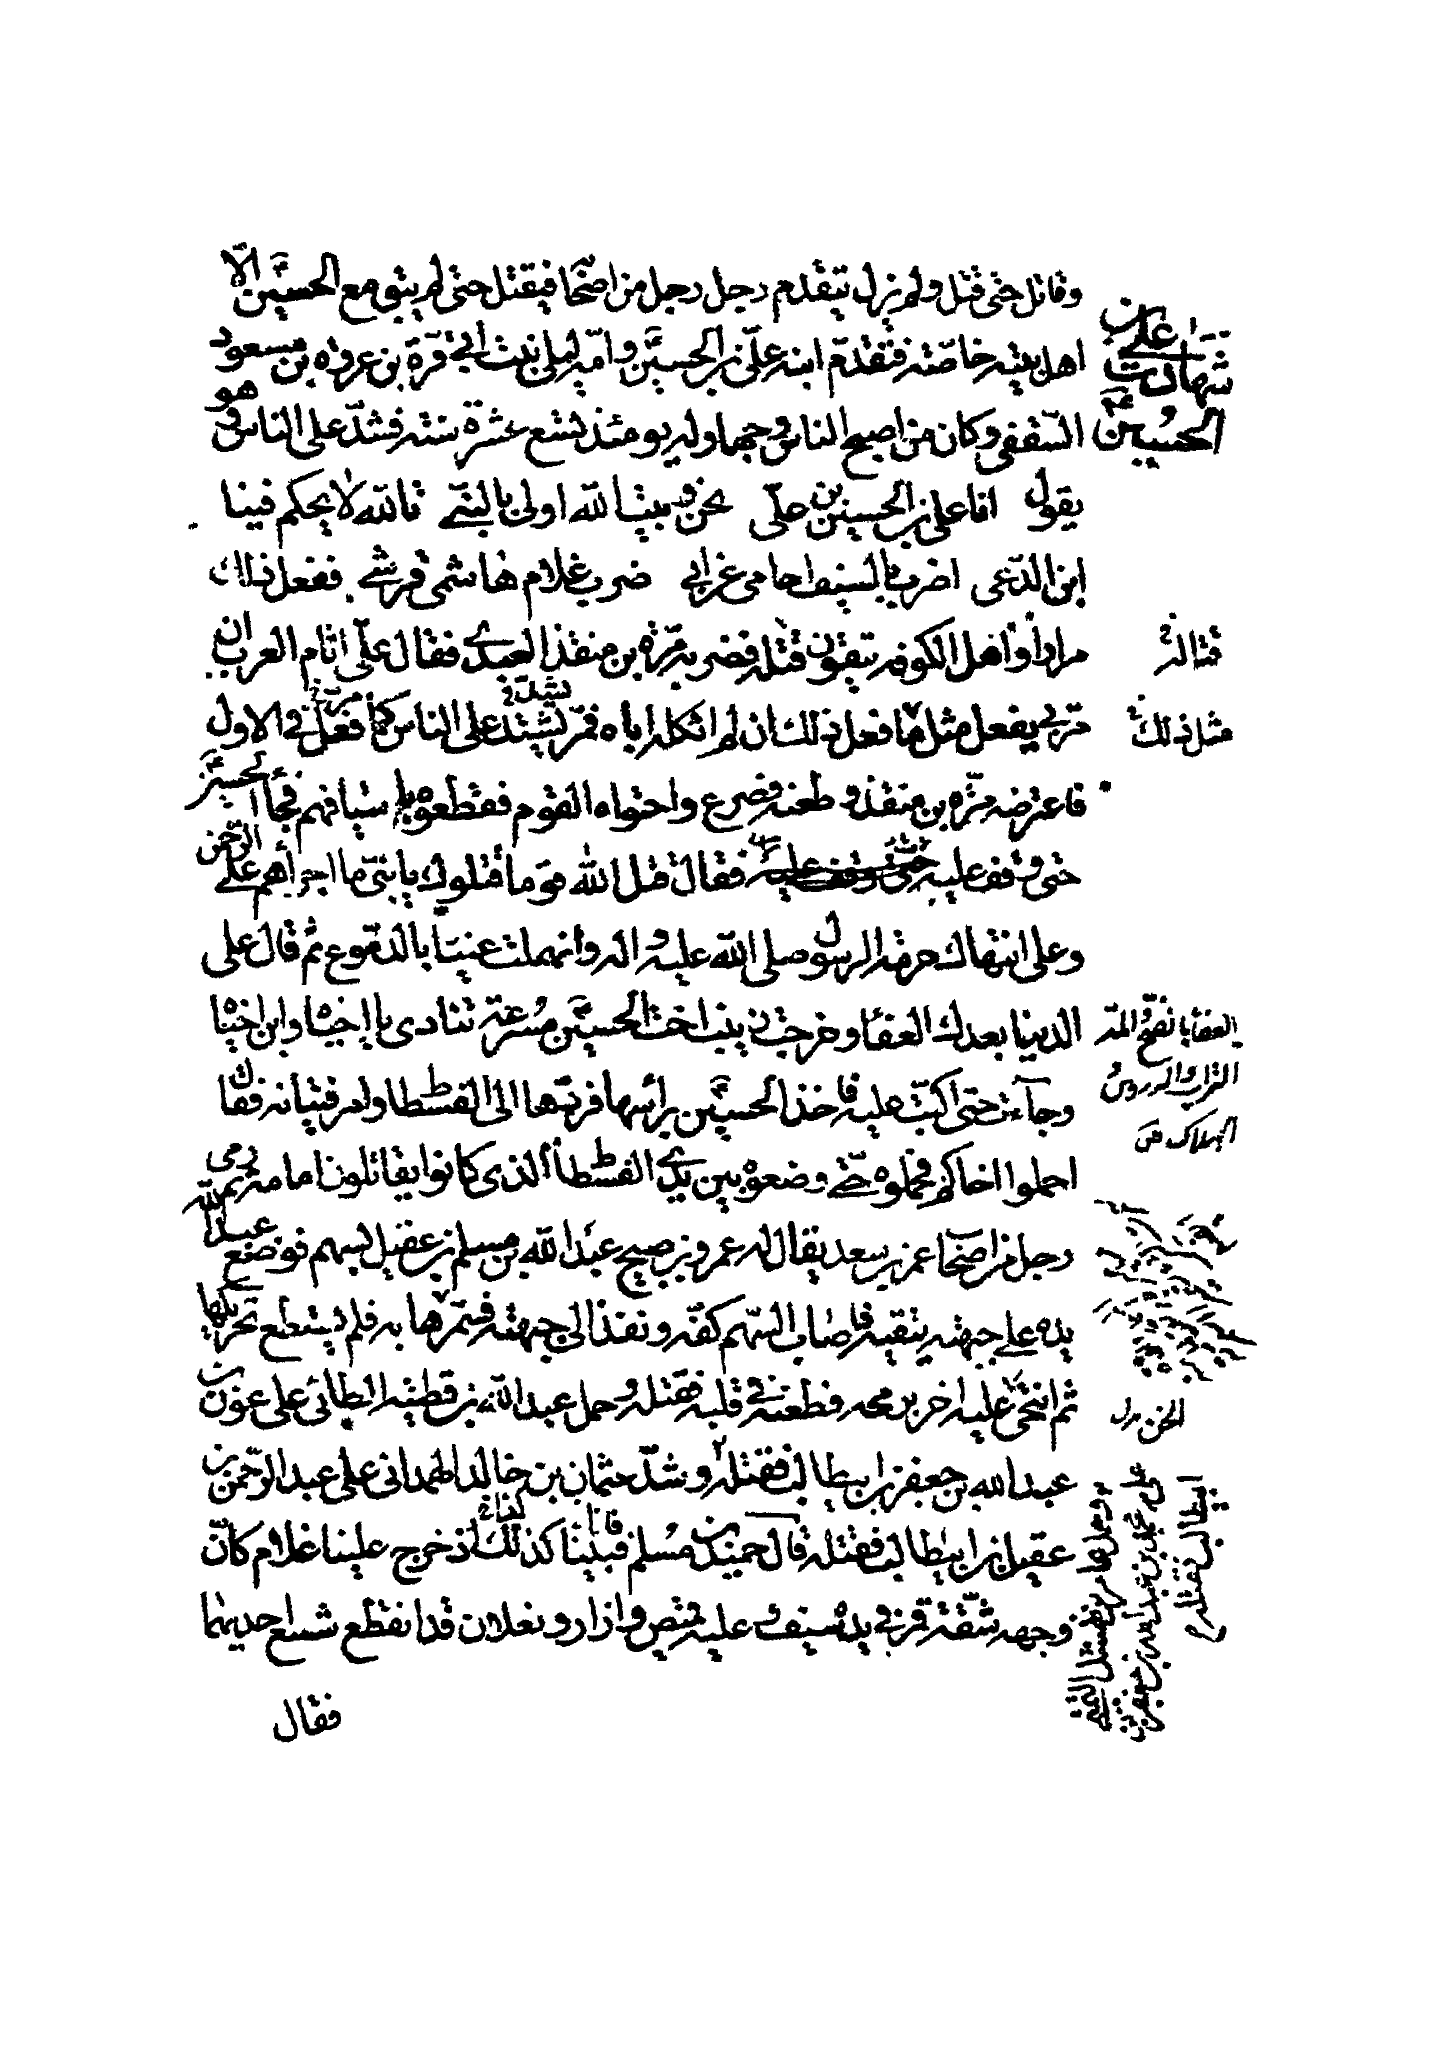 وقاتل حتى قتل ولم يزل يتقدم رجل رجل من اصحابه فيقتل حتى لم يبق مع الحسين الا
اهل بيته خاصته فتقدم ابنه علي بن الحسين وامه ليلى بنت ابي قرة بن عروة بن مسعود
الثقفي وكان من اصبح الناس وجها وله يومئذ تسع عشرة سنة فشد على الناس وهو
يقول انا علي بن الحسين بن علي نحن وبيت الله اولى بالنبي تالله لا يحكم فينا
ابن الدعي اضرب بالسيف احامي عن ابي ضرب غلام هاشمي قرشي ففعل ذلك
مرارا واهل الكوفة يتقون قتله فضربه مرة بن منقذ العبدي فقال علي اثام العرب ان
مر بي يفعل مثل ما فعل ذلك ان لم اثكله اباه فمر يشتد على الناس كما فعل في الاول
فاعترضه مرة بن منقذ وطعنه فصرع واحتواه القوم فقطعوه باسيافهم فجاء الحسين
حتى وقف عليه فقال قتل الله قوما قتلوك يا بني ما اجراهم على الرحمن
وعلى انتهاك حرمة الرسول صلى الله عليه واله وانهملت عيناه بالدموع ثم قال على
الدنيا بعدك العفا وخرجت زينب اخت الحسين مسرعة تنادي يا اخياه وابن اخياه
وجاءت حتى اكبت عليه فاخذ الحسين برأسها فردها الى الفسطاط وامر فتيانه فقال
احملوا اخاكم فحملوه حتى وضعوه بين يدي الفسطاط الذي كانوا يقاتلون امامه ثم رمى
رجل من اصحاب عمر بن سعد يقال له عمرو بن صبيح عبد الله بن مسلم بن عقيل بسهم فوضع عبد الله
يده على جبهته يتقيه فاصاب السهم كفه ونفذ الى جبهته فسمرها به فلم يستطع تحريكها
ثم انتحى عليه اخر برمحه فطعنه في قلبه فقتله وحمل عبد الله بن قطبة الطائي على عون بن
عبد الله بن جعفر بن ابيطالب فقتله وشد عثمان بن خالد الهمداني على عبد الرحمن بن
عقيل بن ابيطالب فقتله قال حميد بن مسلم فبينا كذلك اذ خرج علينا غلام كأن
وجهه شقة قمر في يده سيف وعليه قميص وازار ونعلان قد انقطع شسع احديهما
فقال
شهادت علي بن
الحسين
قتاله
مثل ذلك
العفا بالفتح والمد
التراب والدروس
الهلاك ص